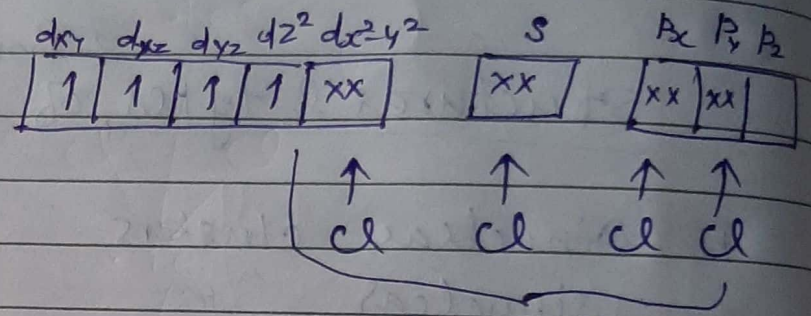 dxy dxz dyz dz² dx²-y² S Px Py Pz
1 1 1 1 xx xx xx xx
↑ ↑ ↑ ↑
Cl Cl Cl Cl